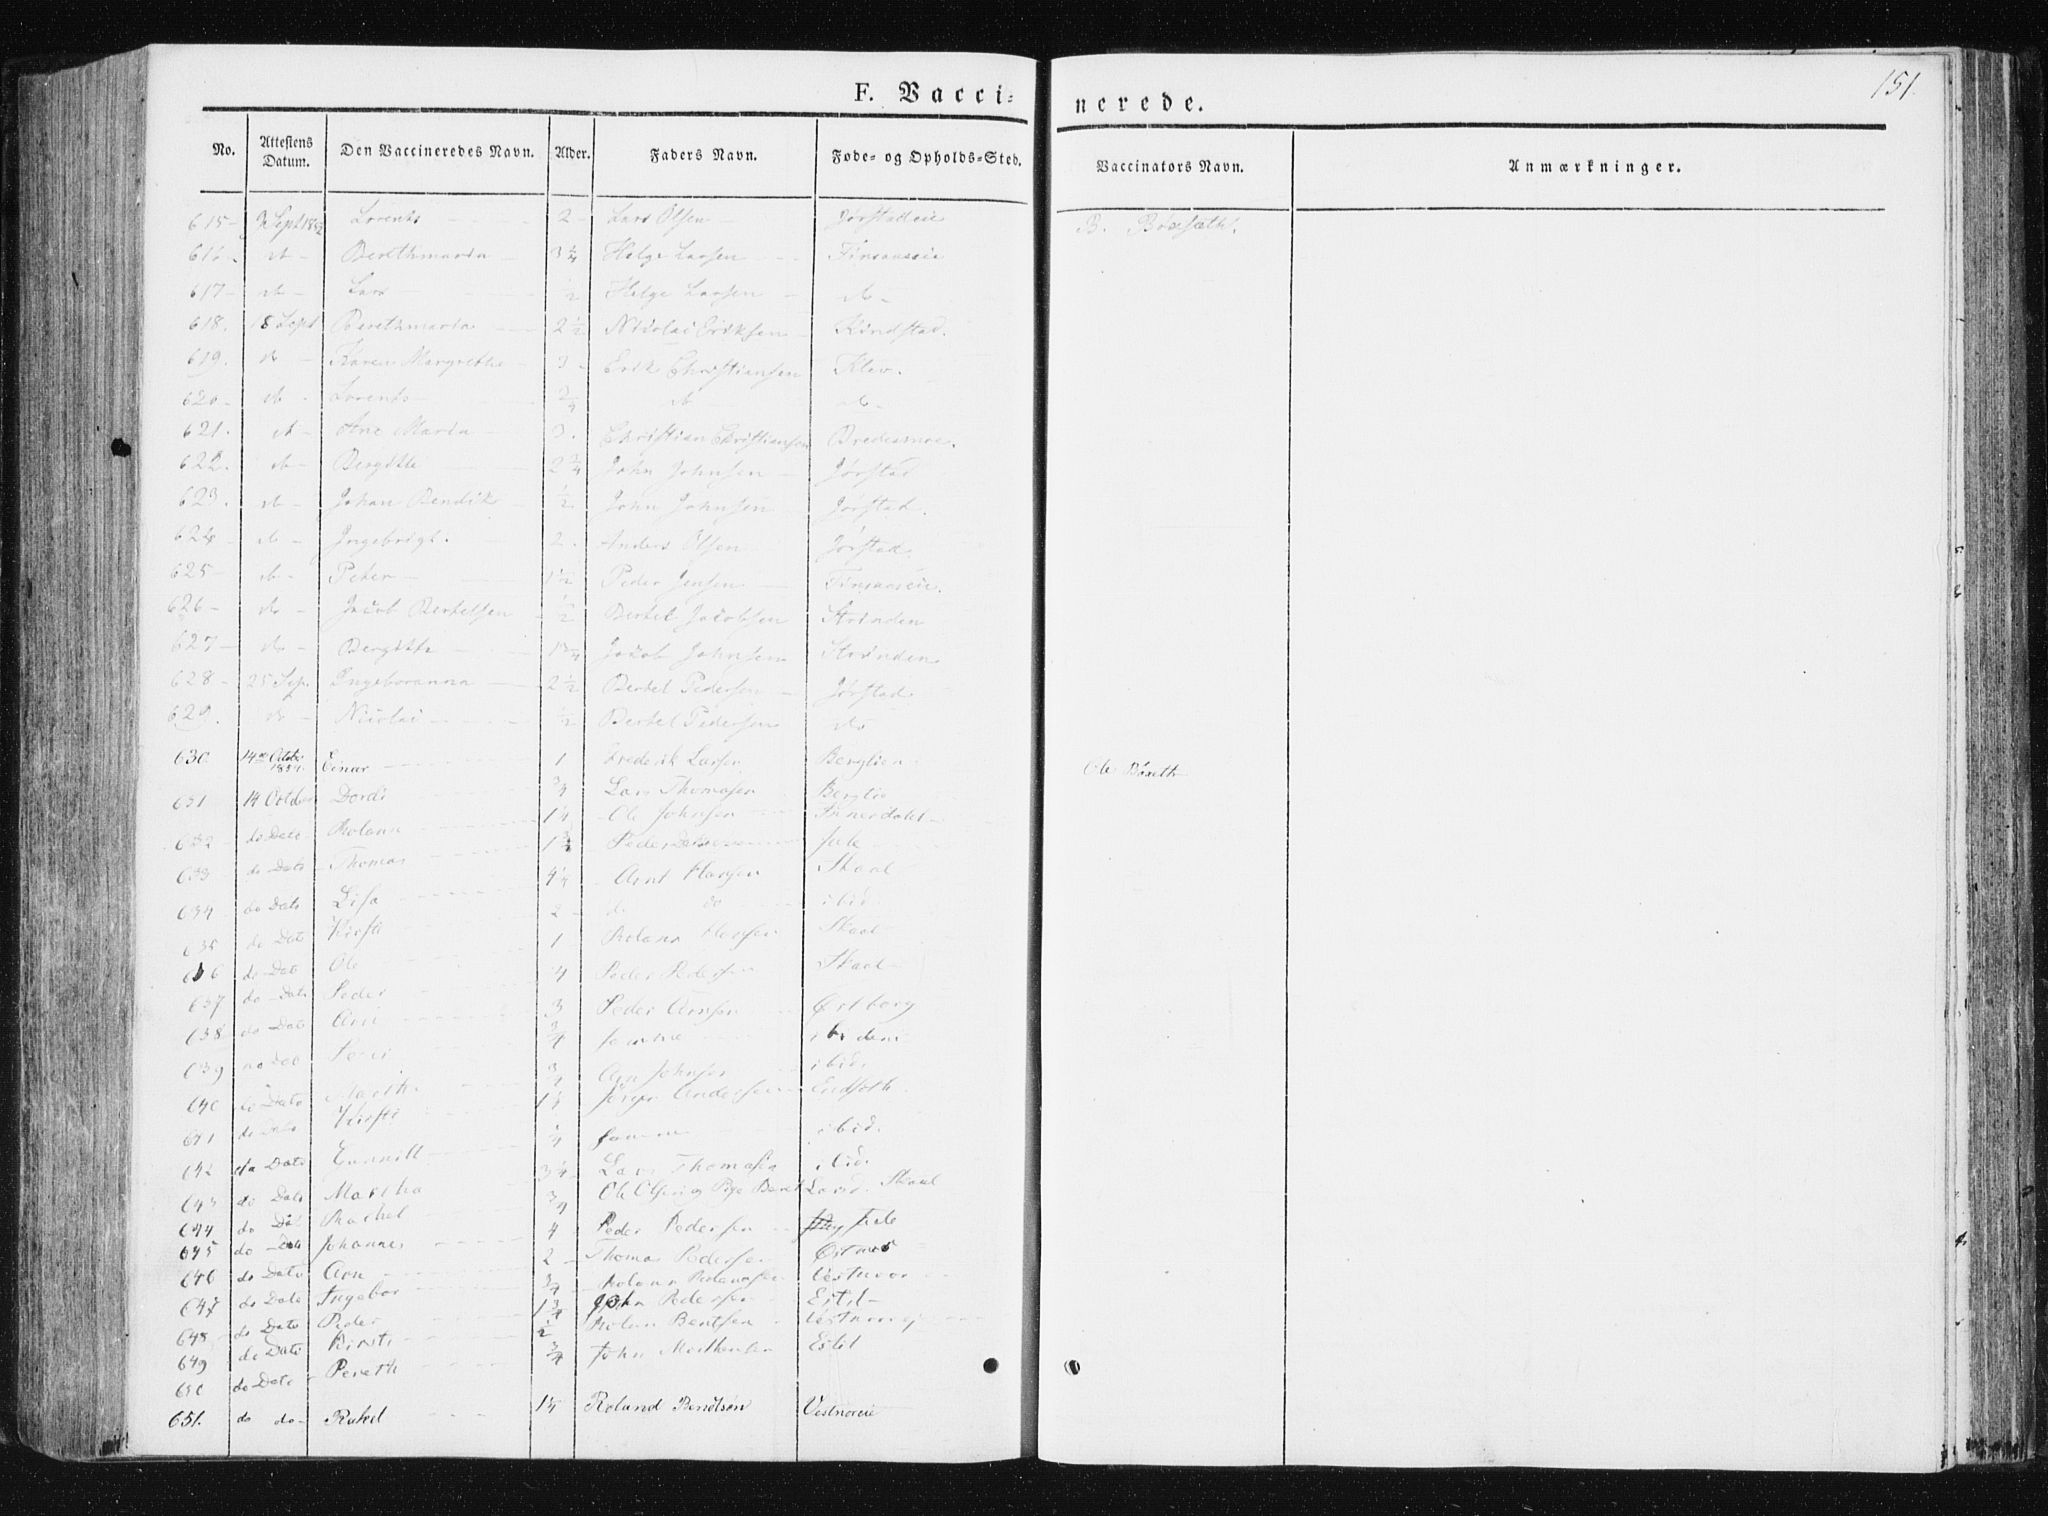 151.
F. Vaccinerede.
No. Attestens Datum. Den Vaccineredes Navn. Alder. Faders Navn. Føde- og Opholds-Sted. Vaccinators Navn. Anmærkninger.
615 3 Sept 1852 Lorents 2 Lars Olsen Jørstadeie B.
616 do Berethmaria 3 1/4 Helge Larsen Finsaaseie
617 do Lars 1/2 Helge Larsen do
618. 18 Sept Berethmaria 2 1/2 Nicolai Eriksen Kindstad.
619. do Karen Margrethe 3 Erik Christiansen Klev.
620 do Lorents 3/4 do do
621. do Ane Maria 3. Christian Christiansen Bredesmoe.
622. do Bergitte 2 3/4 John Johnsen Jørstad
623. do Johan Bendik 1/2 John Johnsen Jørstad.
624 do Ingebrigt. 2. Anders Olsen Jørstad
625 do Peter 1 1/2 Peder Jensen Finsaaseie.
626 do Jacob Bertelsen 1/2 Bertel Jacobsen Strinden
627 do Bergitte 1 3/4 Jacob Johnsen Strinden
628 25 Sep. Ingeboranna 2 1/2 Bertel Pedersen Jørstad
629. do Nicolai 1/2 Bertel Pedersen do
630 14de Octobr 1854. Einar 1 Frederik Larsen Berglien Ole
631 14 Octobr Dordi 3/4 Lars Thomasen Berglie
632 do Dato Roland 1 1/4 Ole Johnsen
633 do Dato Thomas Peder
634 do Dato Lisa 4 1/4 Arnt Hansen Skaal
635 do Dato Kirsti 2 do do ibid.
636 do Dato Ole 1 Roland Hansen Skaal
637 do Dato Peder 4 Peder Pedersen Skaal
638 do Dato Arn 3 Peder Arnsen Østborg
639 do Dato 3/4 samme ibidem
640 do Dato Marth 3/4 Arn Johnsen ibid.
641 do Dato Kirsti Jørgen Andersen
642 do Dato Gunnill 1/4 samme ibid.
643 do Dato Martha 3 1/4 Lars Thomasen ibid.
644 do Dato Rachel 3/4 Ole Olsen og Pige Beret Skaal
645 do Dato Johannes 4 Peder Pedersen
646 do Dato Arn 2 Thomas Pedersen
647 do Dato Ingebor 3/4 Roland Vestnoor
648 do Dato Peder 1 3/4 John Pedersen Estil
649 do Dato Kirsti 1/2 Rolan Bentsen
650 do Dato Pereth 3/4 John Estil
651. do do Rakel 1 1/4 Roland Bendtsøn Vestnoreie